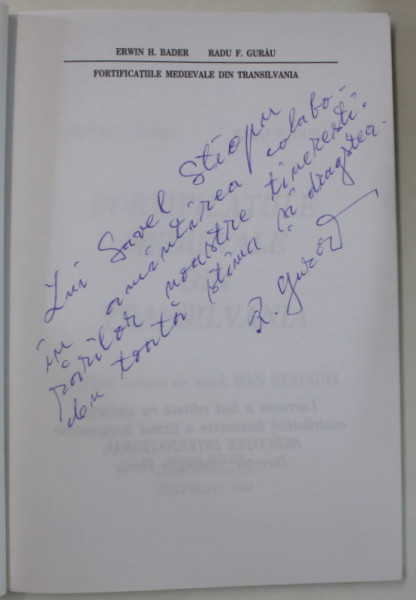 ERWIN H. BADER RADU F. GURĂU
FORTIFICAȚIILE MEDIEVALE DIN TRANSILVANIA
Lui Savel Stiopu
în amintirea colabo-
rărilor noastre tinerești.
cu toată stima și dragostea.
R. Gurău